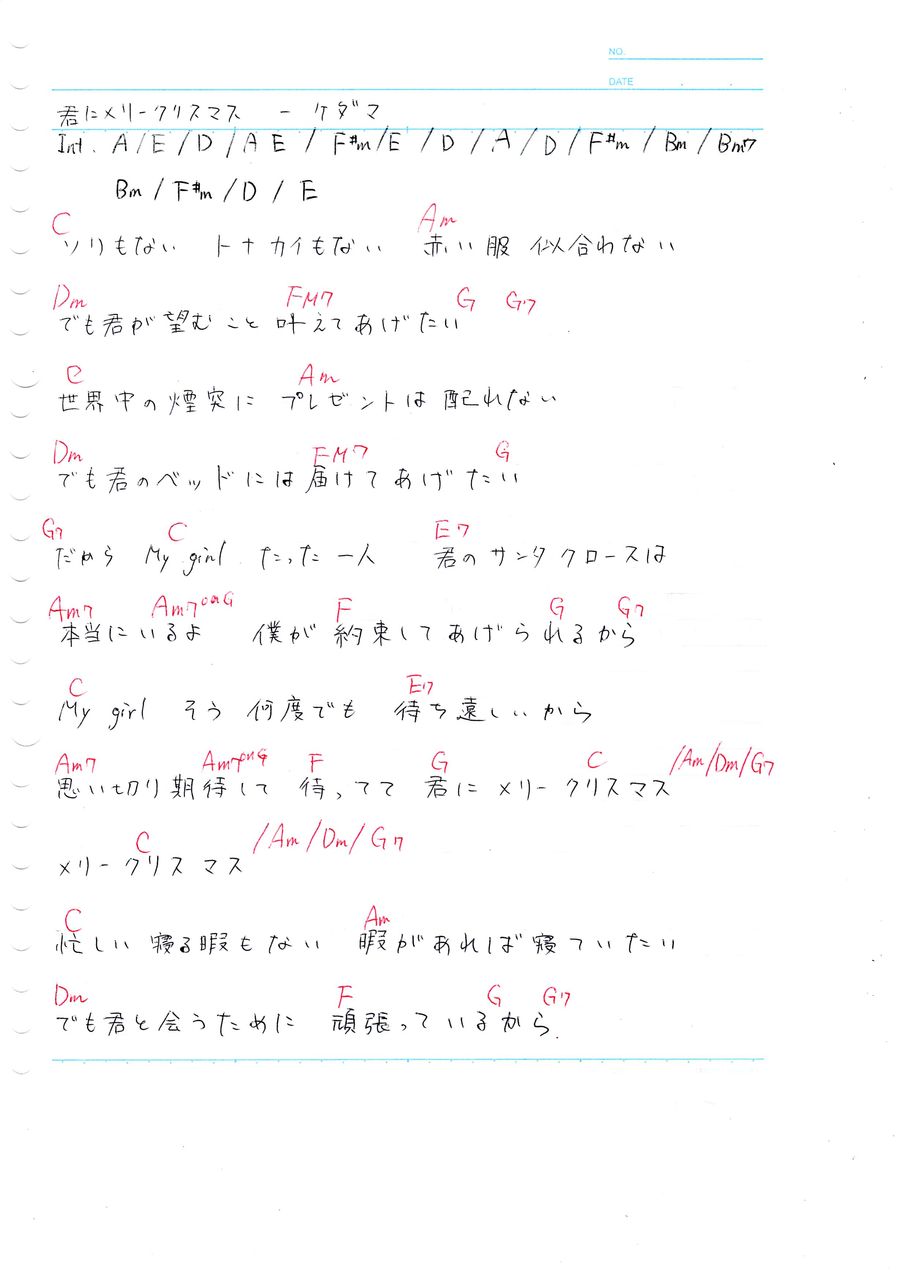 NO.
DATE
君にメリークリスマス － ケダマ
Int. A / E / D / A E / F#m / E / D / A / D / F#m / Bm / Bm7
Bm / F#m / D / E
C Am
ソリもない トナカイもない 赤い服 似合わない
Dm FM7 G G7
でも君が望むこと 叶えてあげたい
C Am
世界中の煙突に プレゼントは配れない
Dm FM7 G
でも君のベッドには届けてあげたい
G7 C E7
だから My girl たった一人 君のサンタクロースは
Am7 Am7onG F G G7
本当にいるよ 僕が約束してあげられるから
C E7
My girl そう 何度でも 待ち遠しいから
Am7 Am7onG F G C /Am/Dm/G7
思い切り期待して 待ってて 君にメリークリスマス
C /Am/Dm/G7
メリークリスマス
C Am
忙しい 寝る暇もない 暇があれば寝ていたい
Dm F G G7
でも君と会うために 頑張っているから.